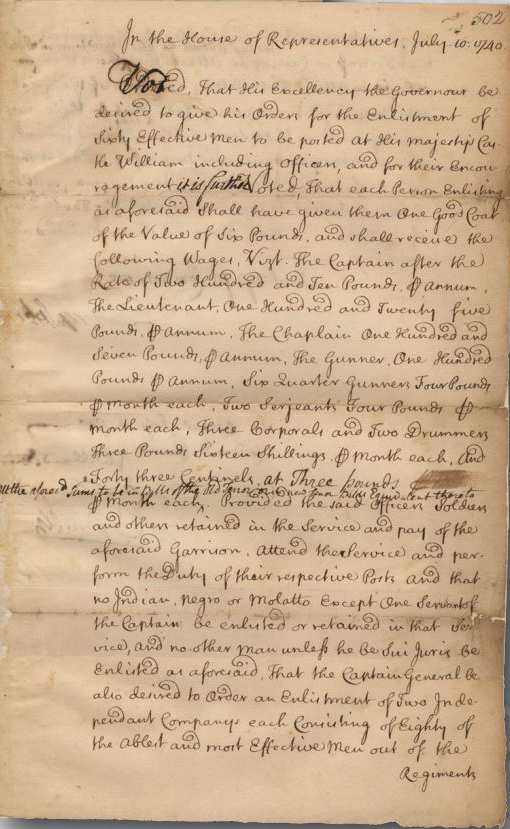 502
In the House of Representatives. July. 10. 1740.
Voted, That His Excellency the Governour be
desired to give his Orders for the Enlistment of
Sixty Effective Men to be posted at His Majestys Cas-
tle William including Officers, and for their Encou-
ragement it is further Voted, That each Person Enlisting
as aforesaid Shall have given them One Good Coat
of the Value of Six Pounds, and shall receive the
following Wages, Vizt. The Captain after the
Rate of Two Hundred and Ten Pounds, ⅌ Annum,
The Lieutenant, One Hundred and Twenty five
Pounds, ⅌ Annum, The Chaplain One Hundred and
Seven Pounds, ⅌ Annum, The Gunner, One Hundred
Pounds ⅌ Annum, Six Quarter Gunners Four Pounds
⅌ Month each, Two Serjeants Four Pounds ⅌
Month each, Three Corporals and Two Drummers
Three Pounds Sixteen Shillings, ⅌ Month each, And
Forty three Centinels, at Three pounds
All the afores.d Sums to be in bills of the Old Tenor or in new Tenor Bills Equivalent thereto
⅌ Month each, Provided the said Officers Soldiers
and others retained in the Service and pay of the
aforesaid Garrison, Attend the Service and per-
form the Duty of their respective Posts And that
no Indian, Negro or Molatto Except One Servant of
the Captain be enlisted or retained in that Ser-
vice, and no other Man unless he be Sui Juris be
Enlisted as aforesaid, That the Captain General be
also desired to Order an Enlistment of Two Inde-
pendant Companys each Consisting of Eighty of
the Ablest and most Effective Men out of the
Regiments